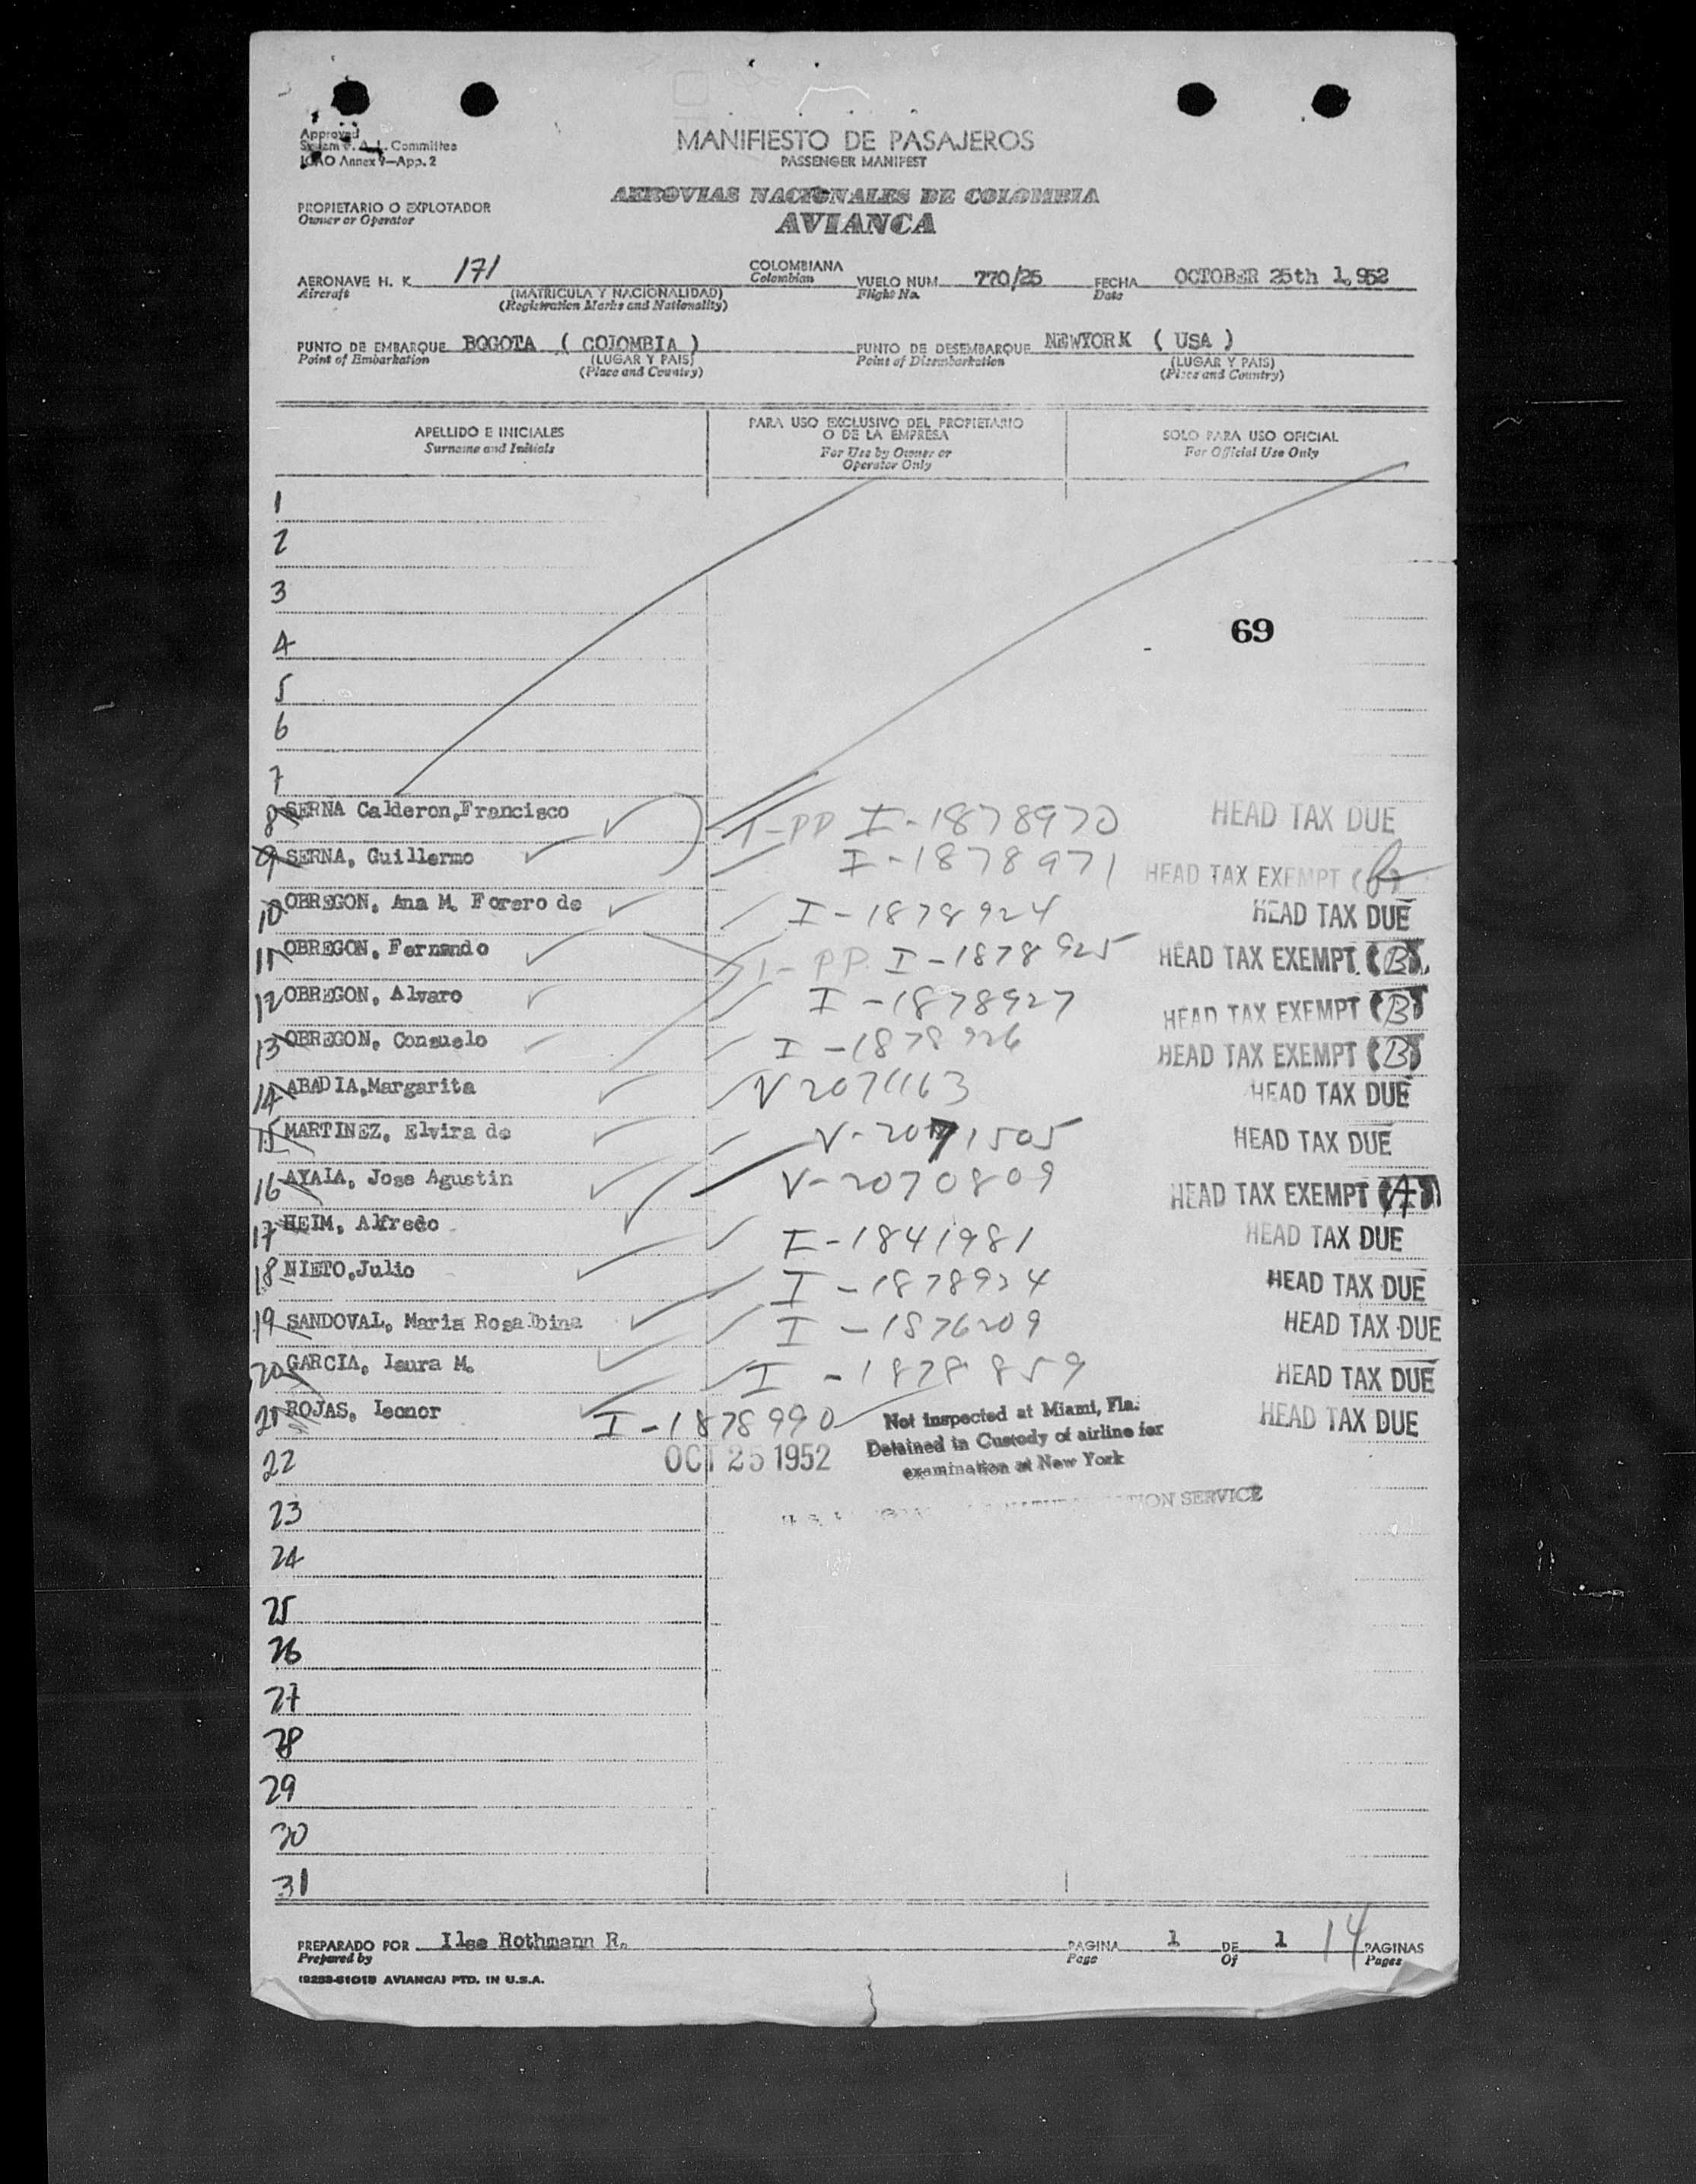 Approved
ICAO Annex 9—App. 2
MANIFIESTO DE PASAJEROS
PASSENGER MANIFEST
PROPIETARIO O EXPLOTADOR
Owner or Operator
AEROVIAS NACIONALES DE COLOMBIA
AVIANCA
AERONAVE H. K. 171 COLOMBIANA VUELO NUM. 770/25 FECHA OCTOBER 25th 1,952
Aircraft (MATRICULA Y NACIONALIDAD) Colombian Flight No. Date
(Registration Marks and Nationality)
PUNTO DE EMBARQUE BOGOTA ( COLOMBIA ) PUNTO DE DESEMBARQUE NEWYORK ( USA )
Point of Embarkation (LUGAR Y PAIS) Point of Disembarkation (LUGAR Y PAIS)
(Place and Country) (Place and Country)
APELLIDO E INICIALES
Surname and Initials
PARA USO EXCLUSIVO DEL PROPIETARIO
O DE LA EMPRESA
For Use by Owner or
Operator Only
SOLO PARA USO OFICIAL
For Official Use Only
1
2
3
69
4
5
6
7
8 SERNA Calderon,Francisco 1-PP I-1878970 HEAD TAX DUE
9 SERNA, Guillermo I-1878971 HEAD TAX EXEMPT
10 OBREGON, Ana M. Forero de I-1878924 HEAD TAX DUE
11 OBREGON, Fernando 1-PP. I-1878925 HEAD TAX EXEMPT (B)
12 OBREGON, Alvaro I-1878927 HEAD TAX EXEMPT (B)
13 OBREGON, Consuelo I-1878926 HEAD TAX EXEMPT (B)
14 ABADIA,Margarita V2071163 HEAD TAX DUE
15 MARTINEZ, Elvira de V-2071505 HEAD TAX DUE
16 AYALA, Jose Agustin V-2070809 HEAD TAX EXEMPT (A)
17 HEIM, Alfredo I-1841981 HEAD TAX DUE
18 NIETO,Julio I-1878924 HEAD TAX DUE
19 SANDOVAL, Maria Rosalbina I-1876209 HEAD TAX DUE
20 GARCIA, Laura M. I-1878859 HEAD TAX DUE
21 ROJAS, Leonor I-1878990 HEAD TAX DUE
Not inspected at Miami, Fla.
Detained in Custody of airline for
examination at New York
22 OCT 25 1952
NATURALIZATION SERVICE
23
24
25
26
27
28
29
30
31
PREPARADO POR Ilse Rothmann R. PAGINA 1 DE 1 14 PAGINAS
Prepared by Page Of Pages
AVIANCA) PTD. IN U.S.A.